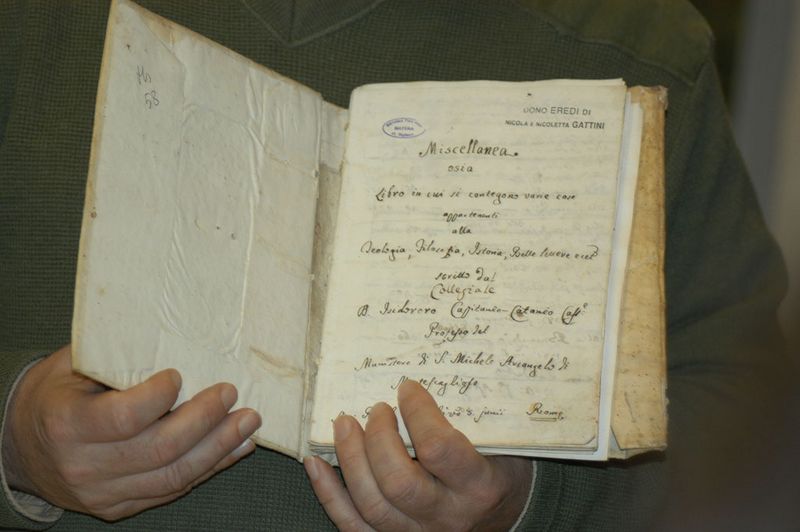 Ms
58
MATERA
DONO EREDI DI
NICOLA E NICOLETTA GATTINI
Miscellanea
osia
Libro in cui si contegono varie cose
appartenenti
alla
Teologia, Filosofia, Istoria, Belle lettere ecc
scritto dal
Collegiale
D. Isidovoro Capitaneo-Cataneo Cass.
Professo del
Monistero di S. Michele Arcangelo di
Montescaglioso
8. junii Rome